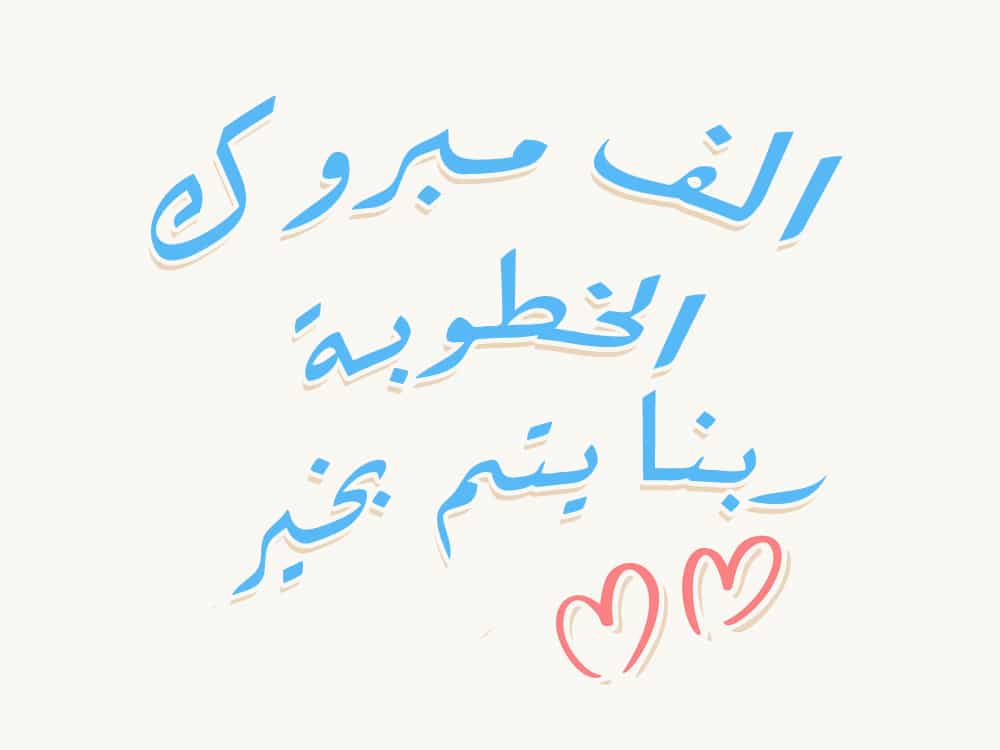 الف مبروك
الخطوبة
ربنا يتم بخير